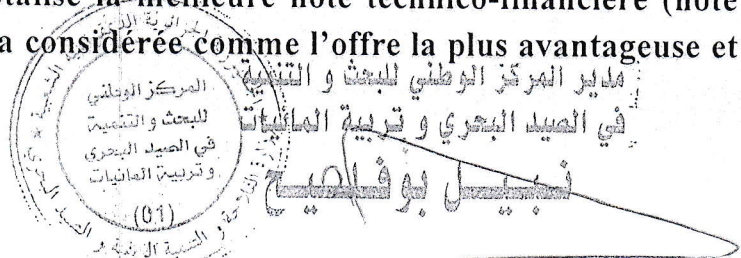 la meilleure note technico-financière (note
considérée comme l’offre la plus avantageuse et
مدير المركز الوطني للبحث و التنمية
في الصيد البحري و تربية المائيات
نبيل بوفلصيح
المركز الوطني
للبحث و التنمية
في الصيد البحري
وتربية المائيات
(01)